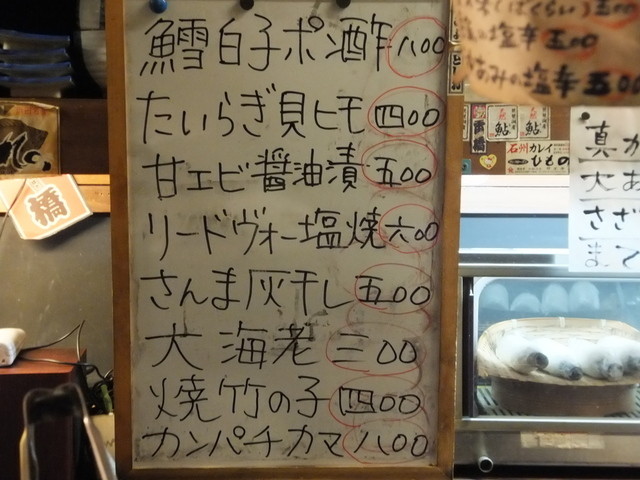 鱈白子ポン酢八00
たいらぎ貝ヒモ四00
甘エビ醤油漬五00
リードヴォー塩焼六00
さんま灰干し五00
大海老三00
焼竹の子四00
カンパチカマ八00
橋
五00
塩辛五00
の塩辛五00
鮎
鮎
石州カレイ
ひもの
真
大
さ
ま